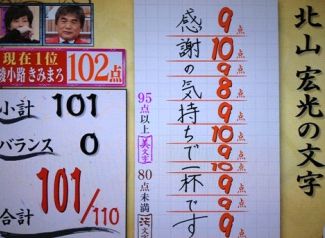 北山 宏光の文字
感謝の気持ちで一杯です
9
10
9
8
9
10
9
10
9
9
9
95点以上 美文字
80点未満 汚文字
現在1位
綾小路 きみまろ 102点
小計 101
バランス 0
合計 101/110